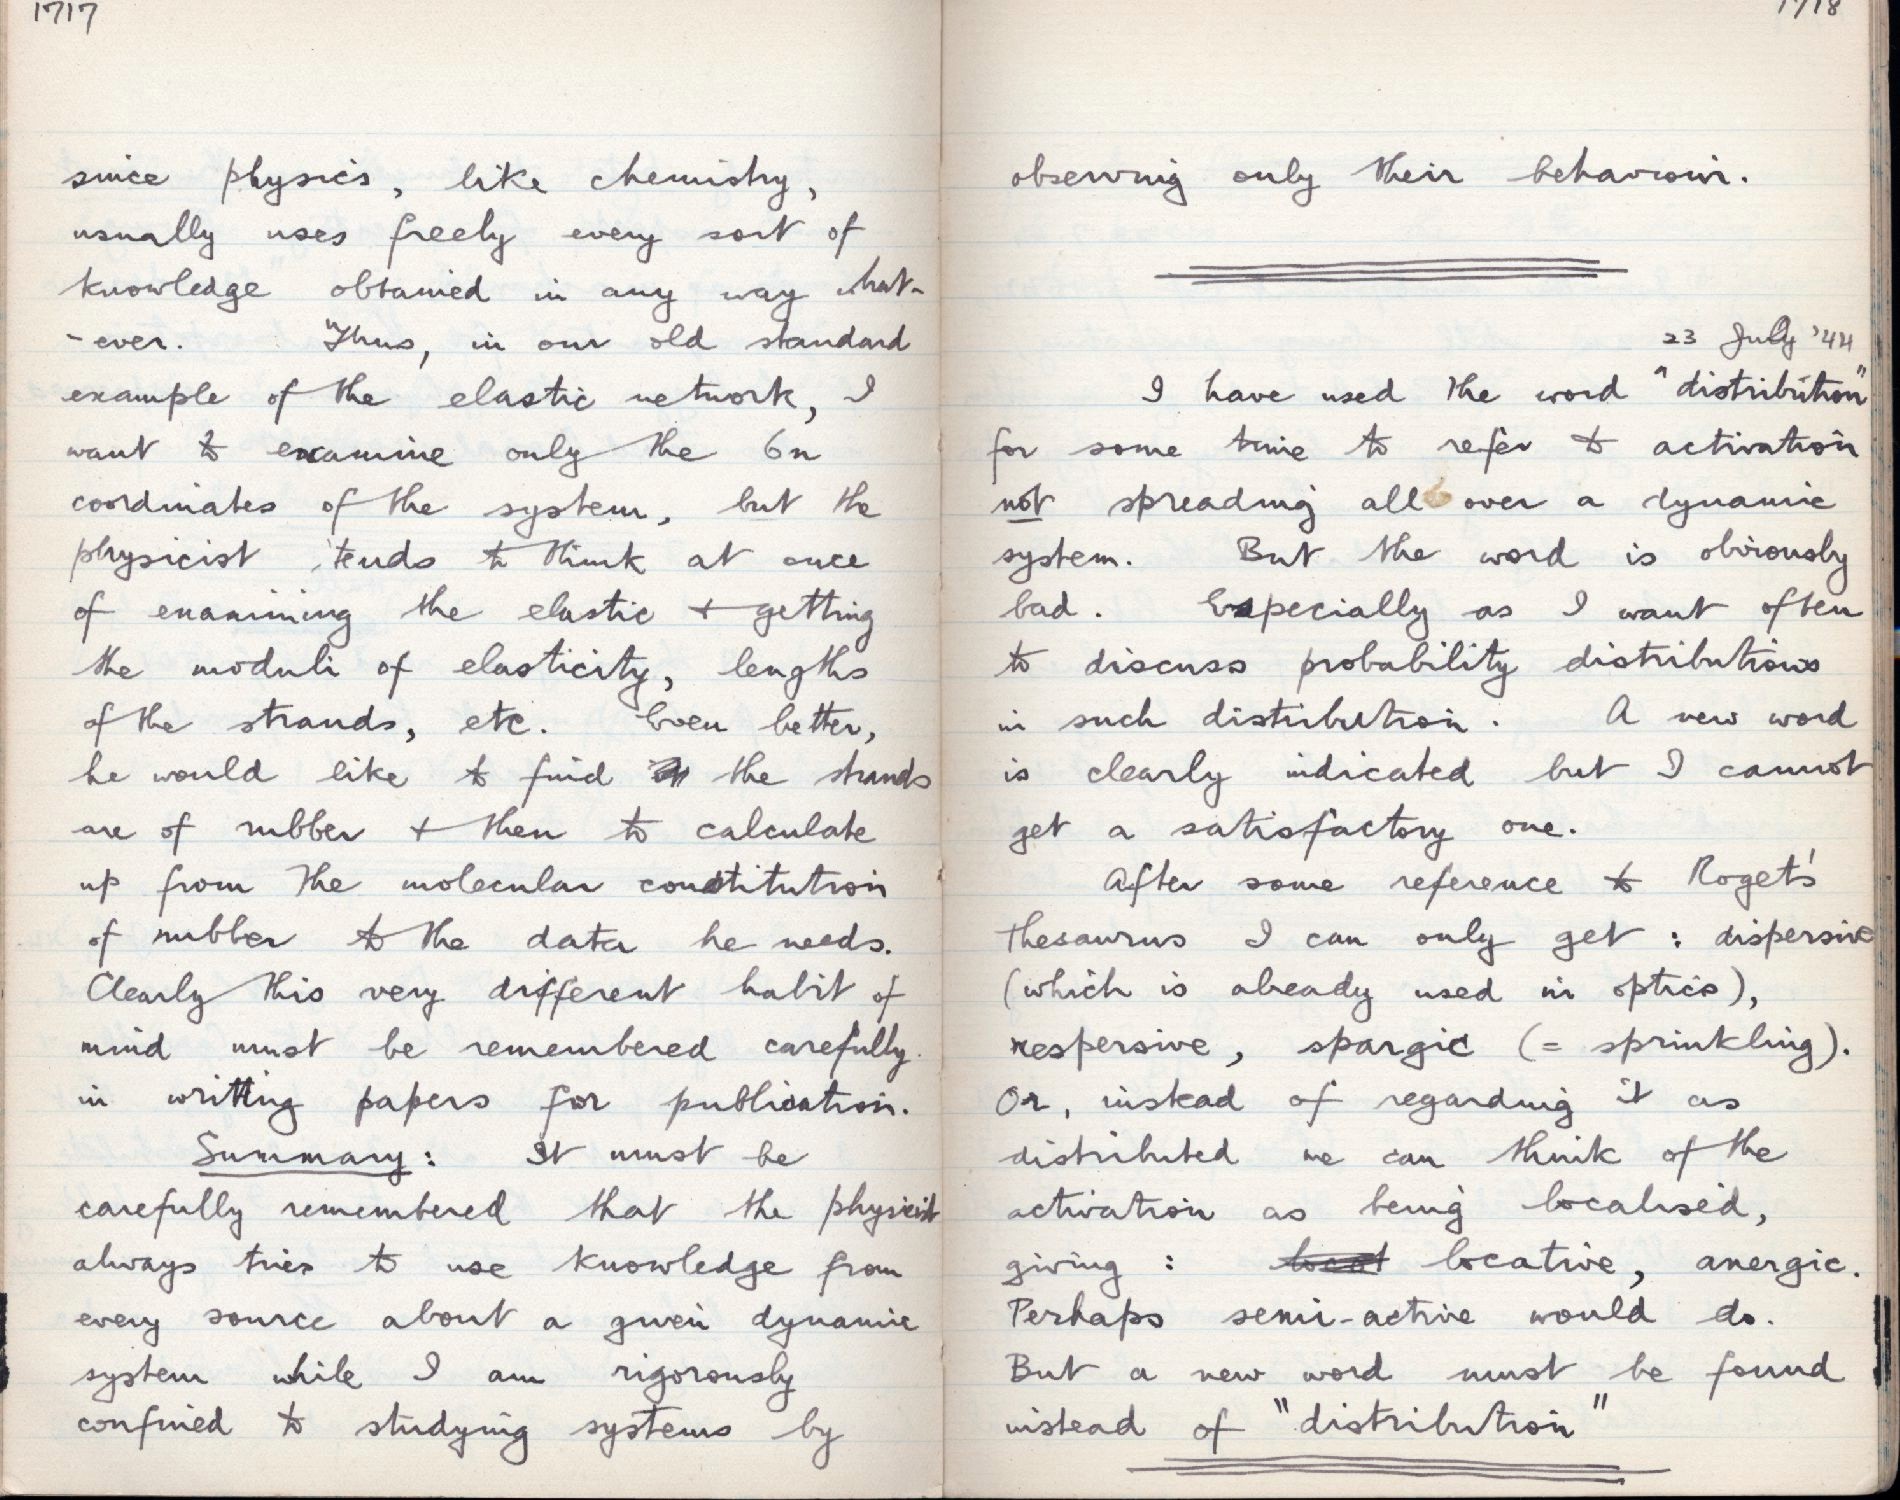 1717
since physics, like chemistry,
usually uses freely every sort of
knowledge obtained in any way what-
-ever. Thus, in our old standard
example of the elastic network, I
want to examine only the 6n
coordinates of the system, but the
physicist tends to think at once
of examining the elastic + getting
the moduli of elasticity, lengths
of the strands, etc. Even better,
he would like to find the strands
are of rubber + then to calculate
up from the molecular constitution
of rubber to the data he needs.
Clearly this very different habit of
mind must be remembered carefully
in writting papers for publication.
Summary: It must be
carefully remembered that the physicist
always tries to use knowledge from
every source about a given dynamic
system while I am rigorously
confined to studying systems by
1718
observing only their behaviour.
23 July '44
I have used the word "distribution"
for some time to refer to activation
not spreading all over a dynamic
system. But the word is obviously
bad. Especially as I want often
to discuss probability distributions
in such distribution. A new word
is clearly indicated but I cannot
get a satisfactory one.
After some reference to Roget's
Thesaurus I can only get : dispersive
(which is already used in optics),
respersive, spargic (= sprinkling).
Or, instead of regarding it as
distributed we can think of the
activation as being localised,
giving : local locative, anergic.
Perhaps semi-active would do.
But a new word must be found
instead of "distribution"